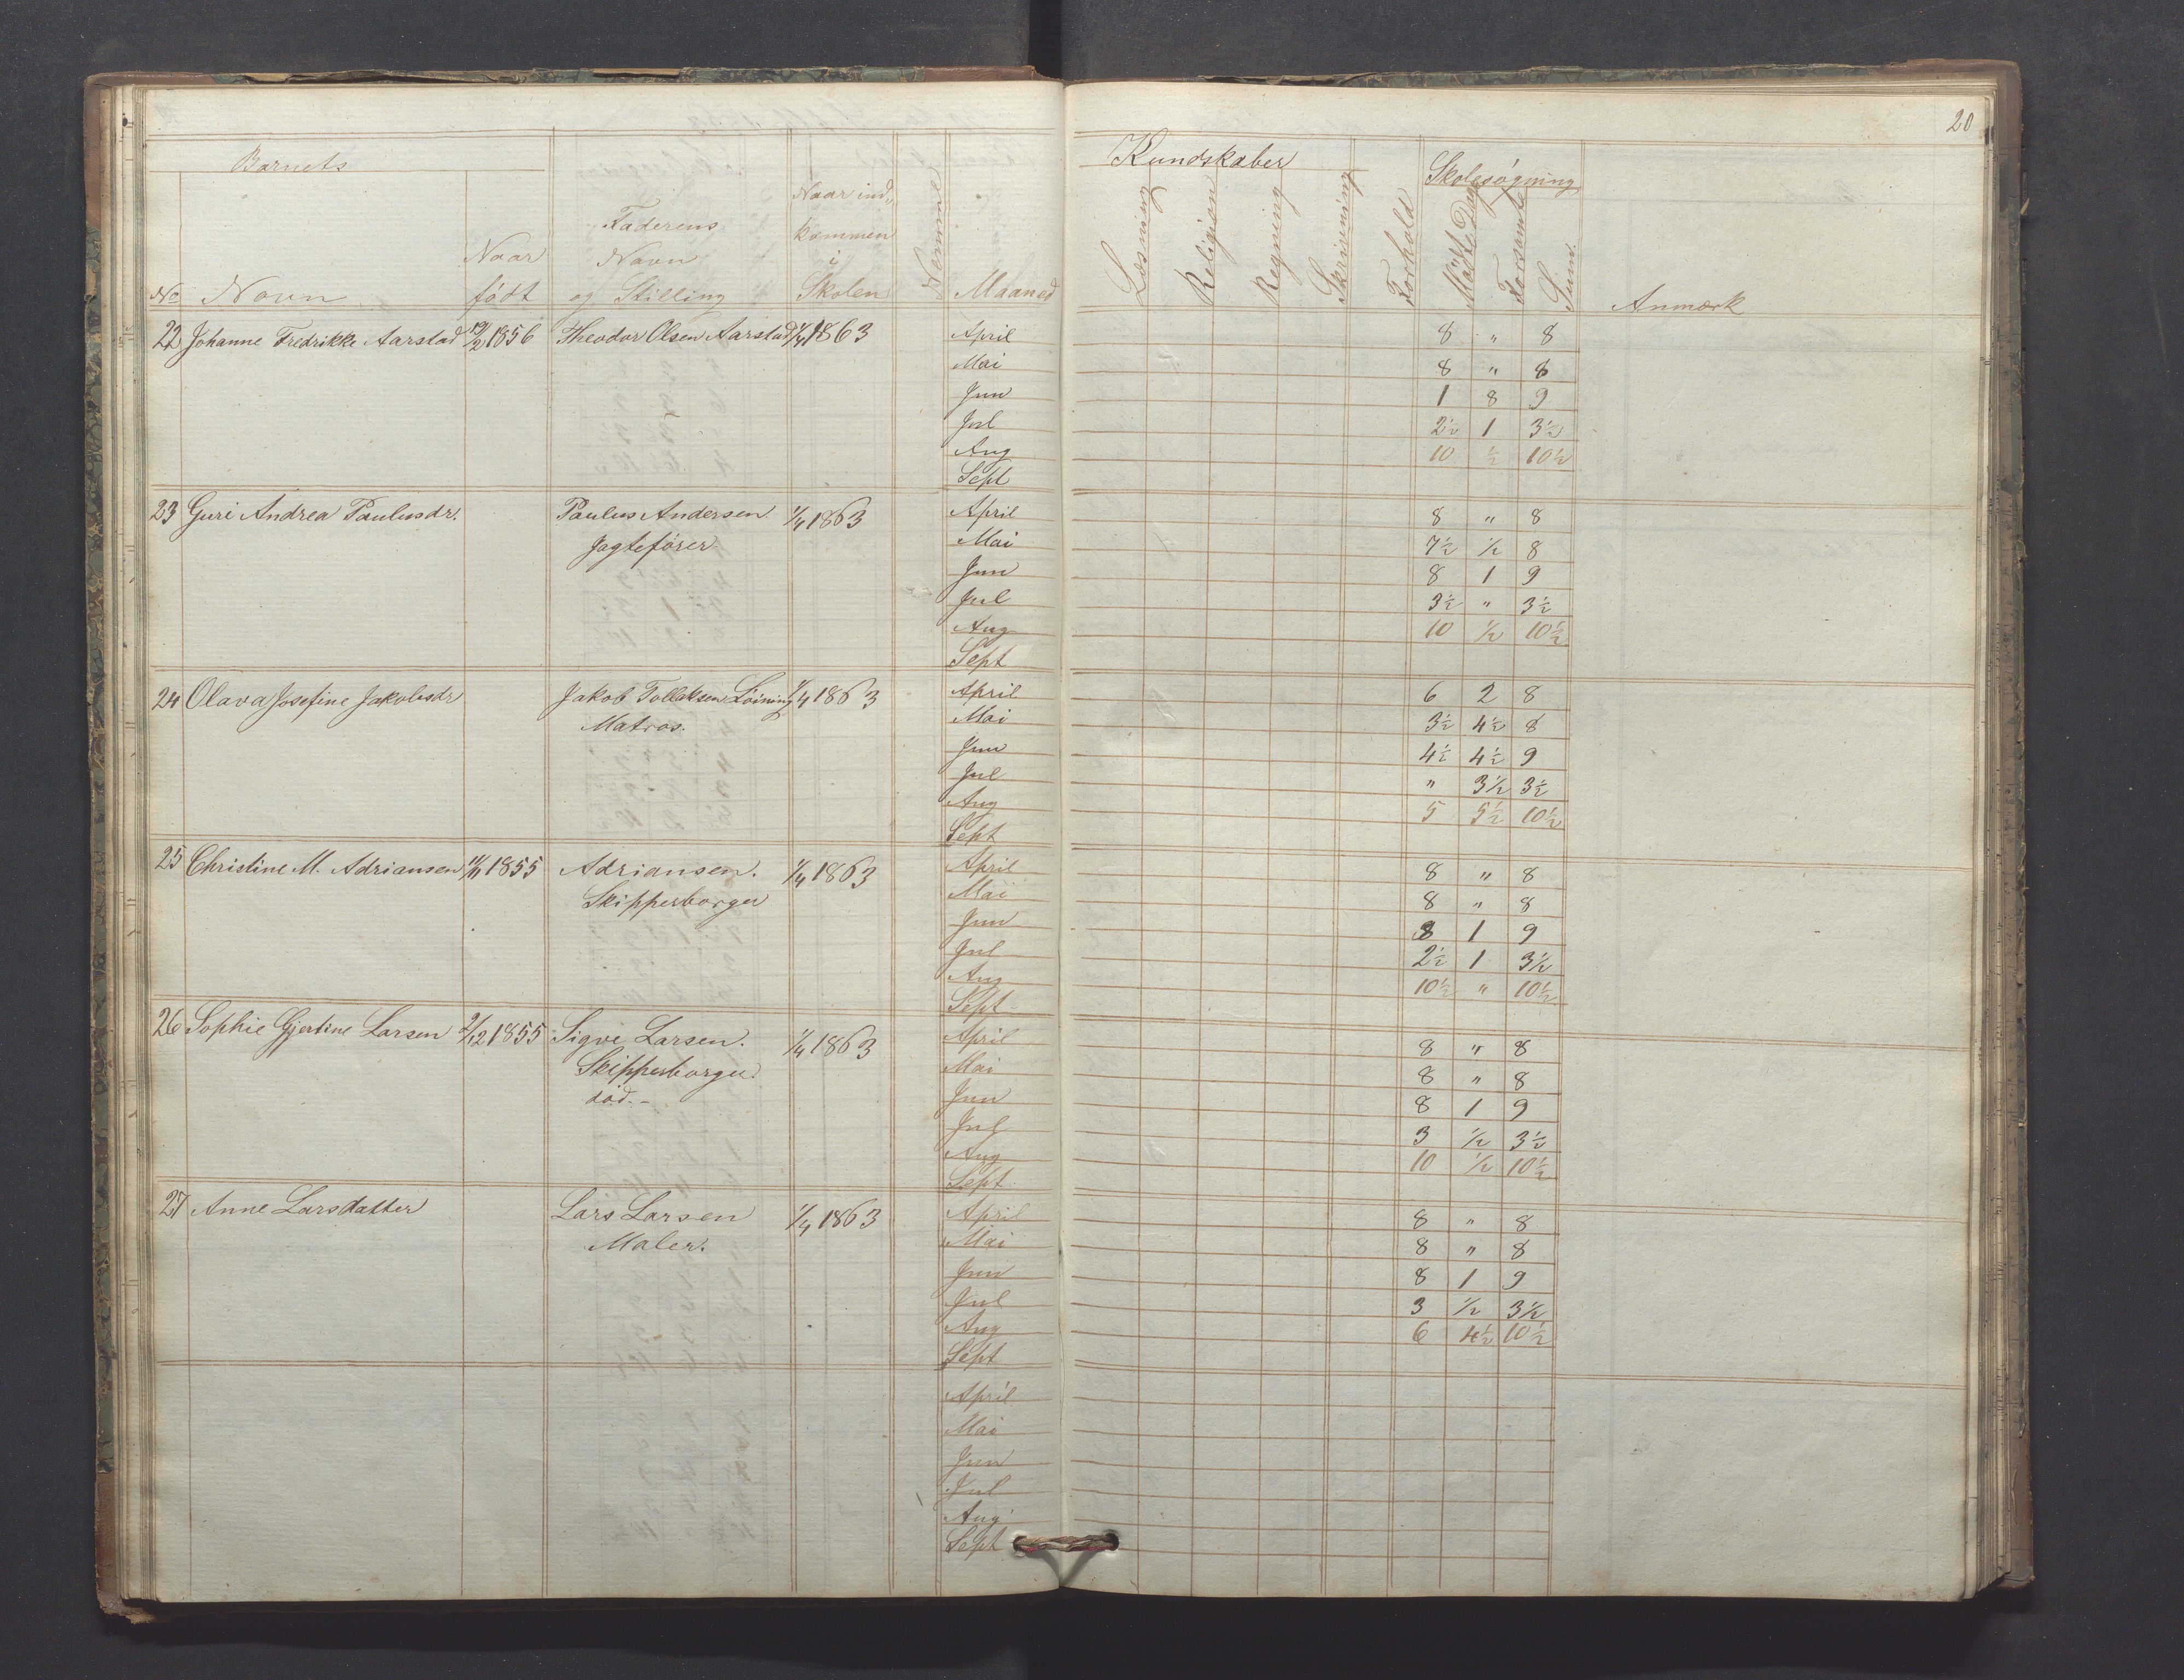 20
Barnets
Kundskaber
Skolesøgning
No Navn
Naar født
Faderens Navn og Stilling
Naar ind- kommen i Skolen
Maaned
Læsning
Religion
Regning
Skrivning
Forhold
Mødte Dage
Forsømte
Sum.
Anmærk
22 Johanne Fredrikke Aarstad 19/2 1856 Theodor Olsen Aarstad 1/4 1863 April 8 " 8
Mai 8 " 8
Jun 1 8 9
Jul 2½ 1 3½
Aug 10 ½ 10½
Sept
23 Guri Andrea Paulusdr. Paulus Andersen 1/4 1863 April 8 " 8
Jagtefører Mai 7½ ½ 8
Jun 8 1 9
Jul 3½ " 3½
Aug 10 ½ 10½
Sept
24 Olava Josefine Jakobsdr Jakob Tollaksen Löining 1/4 1863 April 6 2 8
Matros. Mai 3½ 4½ 8
Jun 4½ 4½ 9
Jul " 3½ 3½
Aug 5 5½ 10½
Sept
25 Christine M. Adriansen 11/11 1855 Adriansen. 1/4 1863 April 8 " 8
Skipperborger Mai 8 " 8
Jun 8 1 9
Jul 2½ 1 3½
Aug 10½ " 10½
Sept
26 Sophie Gjertine Larsen 2/12 1855 Sigve Larsen. 1/4 1863 April 8 " 8
Skipperborger. Mai 8 " 8
död.- Jun 8 1 9
Jul 3 ½ 3½
Aug 10 ½ 10½
Sept
27 Anne Larsdatter Lars Larsen 1/4 1863 April 8 " 8
Maler. Mai 8 " 8
Jun 8 1 9
Jul 3 ½ 3½
Aug 6 4½ 10½
Sept
April
Mai
Jun
Jul
Aug
Sept